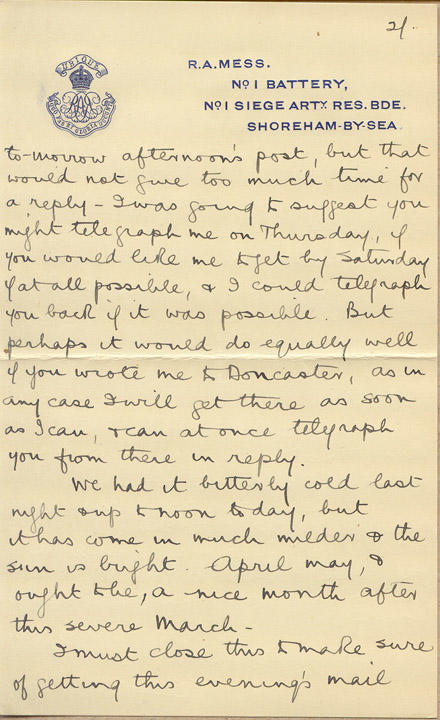 2/.
UBIQUE
R.A. MESS.
No 1 BATTERY,
No 1 SIEGE ARTY. RES. BDE.
SHOREHAM-BY-SEA
to-morrow afternoon's post, but that
would not give too much time for
a reply - I was going to suggest you
might telegraph me on Thursday, if
you would like me to get by Saturday
if at all possible, & I could telegraph
you back if it was possible. But
perhaps it would do equally well
if you wrote me to Doncaster, as in
any case I will get there as soon
as I can, & can at once telegraph
you from there in reply.
We had it bitterly cold last
night & up to noon today, but
it has come in much milder & the
sun is bright. April may, &
ought to be, a nice month after
this severe March -
I must close this to make sure
of getting this evening's mail